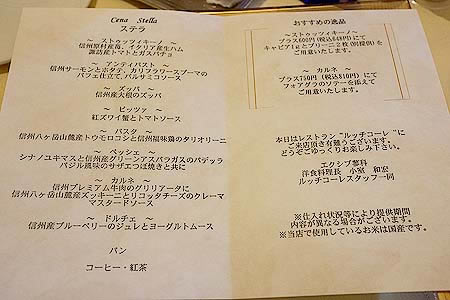 Cena Stella
ステラ
～ ストゥッツィキーノ ～
信州原村産苺、イタリア産生ハム
諏訪産トマトとガスパチョ
～ アンティパスト ～
信州サーモンとホタテ、カリフラワースプーマの
パフェ仕立て、バルサミコソース
～ ズッパ ～
信州産大根のズッパ
～ ピッツァ ～
紅ズワイ蟹とトマトソース
～ パスタ ～
信州八ヶ岳山麓産トウモロコシと信州福味鶏のタリオリーニ
～ ペッシェ ～
シナノユキマスと信州産グリーンアスパラガスのパデッラ
バジル風味のサザエつぼ焼きと共に
～ カルネ ～
信州プレミアム牛肉のグリリアータに
信州八ヶ岳山麓産ズッキーニとリコッタチーズのクレーマ
マスタードソース
～ ドルチェ ～
信州産ブルーベリーのジュレとヨーグルトムース
パン
コーヒー・紅茶
おすすめの逸品
～ ストゥッツィキーノ ～
プラス600円（税込648円）にて
キャビア1gとブリーニ2枚（別提供）を
ご用意いたします。
～ カルネ ～
プラス750円（税込810円）にて
フォアグラのソテーを添えて
ご用意いたします。
本日はレストラン“ルッチコーレ”に
ご来店頂き有難うございます。
どうぞごゆっくりお楽しみ下さい。
エクシブ蓼科
洋食料理長 小室 和宏
ルッチコーレスタッフ一同
※仕入れ状況等により提供期間
内容が異なる場合がございます。
※当店で使用しているお米は国産です。